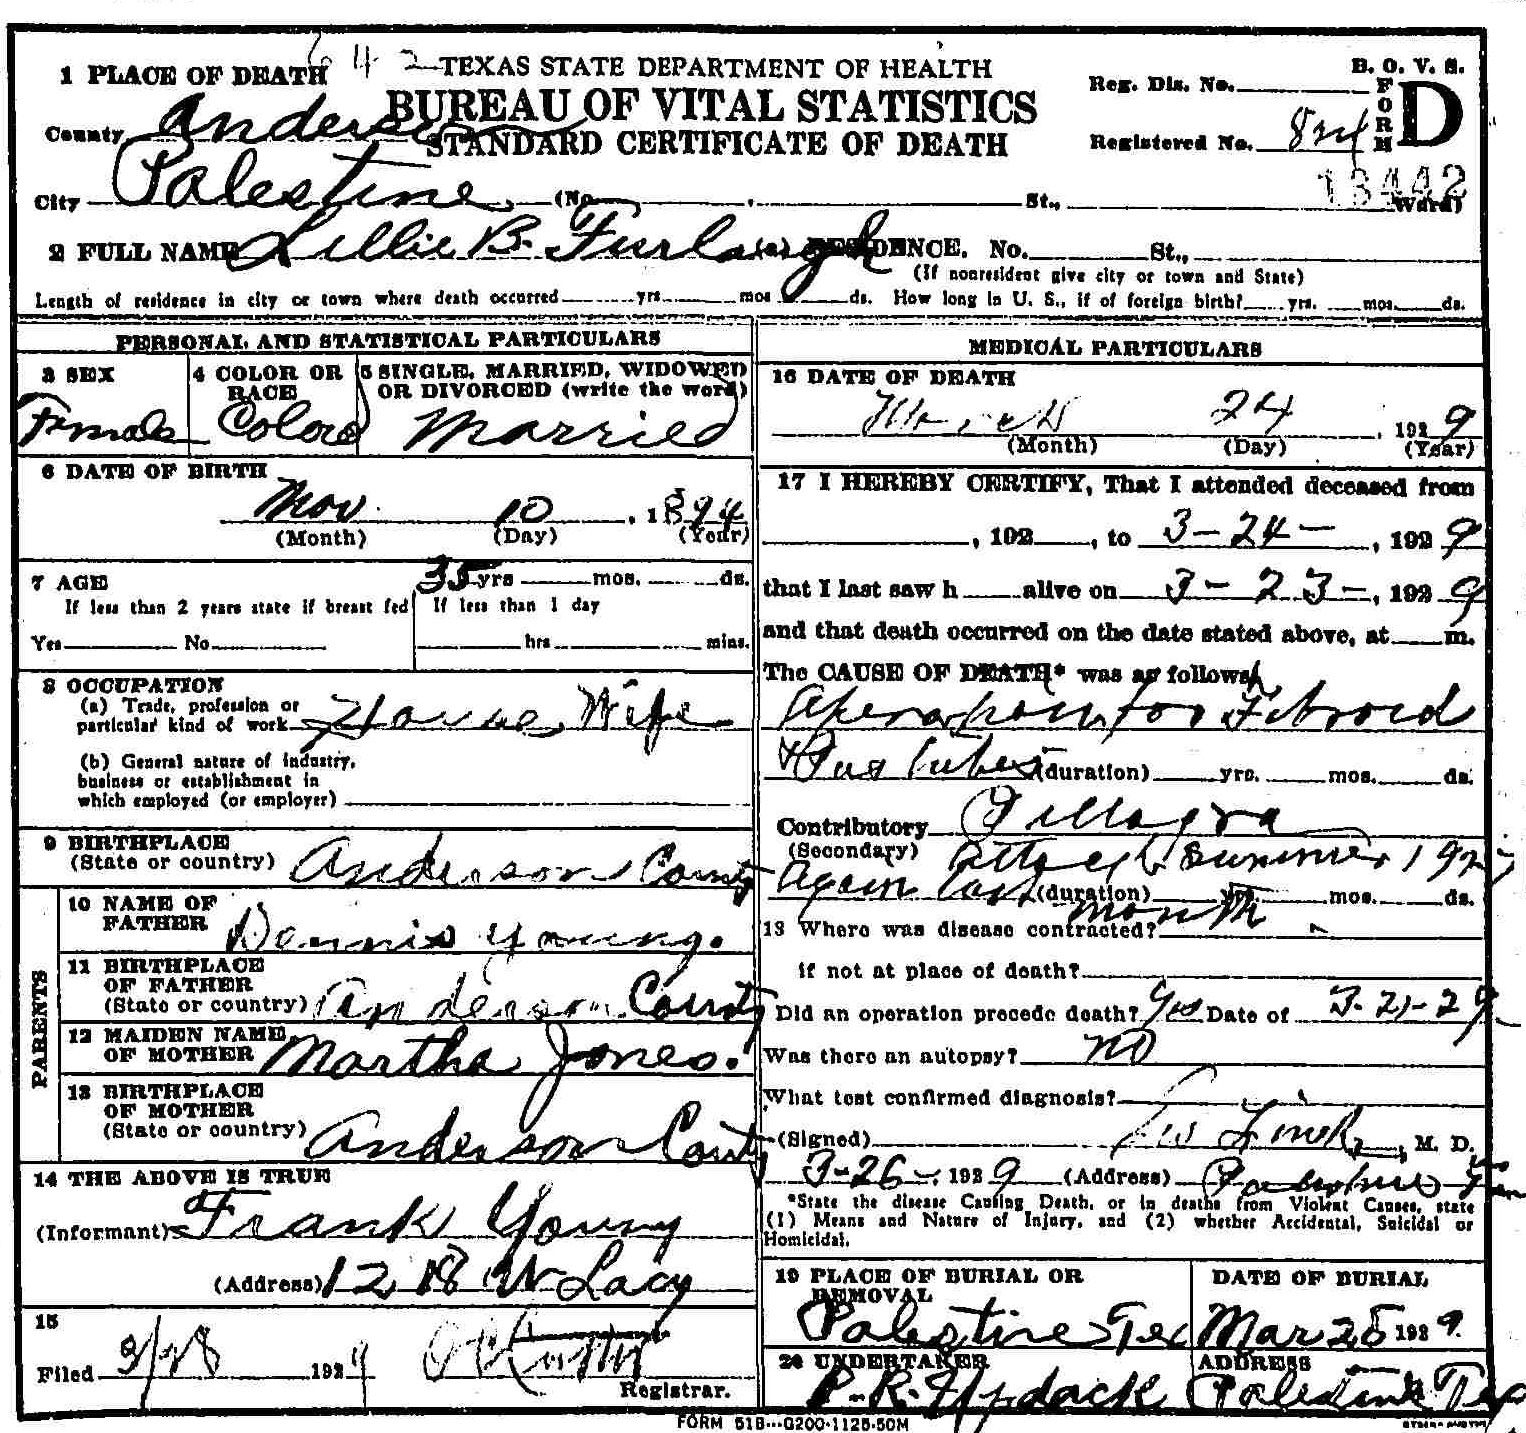 642
TEXAS STATE DEPARTMENT OF HEALTH
BUREAU OF VITAL STATISTICS
STANDARD CERTIFICATE OF DEATH
B. O. V. S.
FORM D
Reg. Dis. No.
Registered No.
13442
1 PLACE OF DEATH
County Anderson
City Palestine (No. , St., Ward)
2 FULL NAME Lillie B. Furlough (a) RESIDENCE. No. St.,
(If nonresident give city or town and State)
Length of residence in city or town where death occurred yrs. mos. ds. How long in U. S., if of foreign birth? yrs. mos. ds.
PERSONAL AND STATISTICAL PARTICULARS
3 SEX
Female
4 COLOR OR RACE
Colored
5 SINGLE, MARRIED, WIDOWED
OR DIVORCED (write the word)
Married
6 DATE OF BIRTH
Nov. 10, 1894
(Month) (Day) (Year)
7 AGE 35 yrs mos. ds.
If less than 2 years state if breast fed
Yes No
If less than 1 day
hrs mins.
8 OCCUPATION
(a) Trade, profession or
particular kind of work House Wife
(b) General nature of industry,
business or establishment in
which employed (or employer)
9 BIRTHPLACE
(State or country) Anderson County
PARENTS
10 NAME OF
FATHER Dennis Young.
11 BIRTHPLACE
OF FATHER
(State or country) Anderson County
12 MAIDEN NAME
OF MOTHER Martha Jones.
13 BIRTHPLACE
OF MOTHER
(State or country) Anderson County
14 THE ABOVE IS TRUE
(Informant) Frank Young
(Address) 1218 W Lacy
15
Filed 3/28 1929
Registrar.
MEDICAL PARTICULARS
16 DATE OF DEATH
March 24, 1929
(Month) (Day) (Year)
17 I HEREBY CERTIFY, That I attended deceased from
, 192 , to 3-24-, 1929
that I last saw h alive on 3-23-, 1929
and that death occurred on the date stated above, at m.
The CAUSE OF DEATH* was as follows
Operation for Fibroid
& Pus tubes (duration) yrs. mos. ds.
Contributory Pellagra
(Secondary) attack summer 1927
again last (duration) yrs. mos. ds.
month
18 Where was disease contracted?
if not at place of death?
Did an operation precede death? Yes Date of 3-21-29
Was there an autopsy? no
What test confirmed diagnosis?
(Signed) Link, M. D.
3-26-, 1929 (Address) Palestine Tex
*State the disease Causing Death, or in deaths from Violent Causes, state
(1) Means and Nature of Injury, and (2) whether Accidental, Suicidal or
Homicidal.
19 PLACE OF BURIAL OR
REMOVAL
Palestine Tex
DATE OF BURIAL
Mar 25 1929.
20 UNDERTAKER
P. R. Updack
ADDRESS
Palestine Tex
FORM 51B---G200-1125-50M